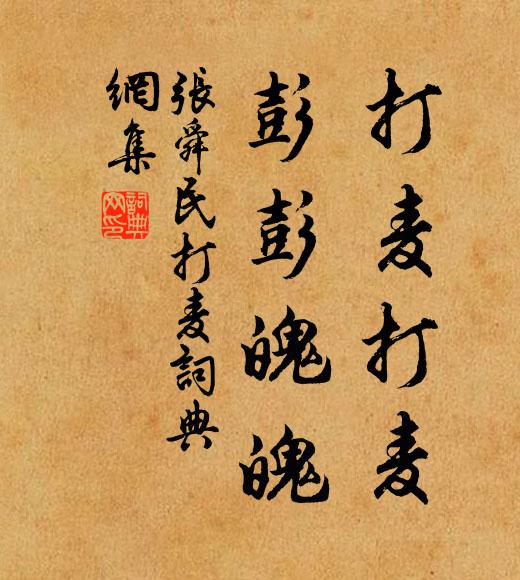 打麦打麦
彭彭魄魄
張舜民打麦詞典
網集
詞典
网印